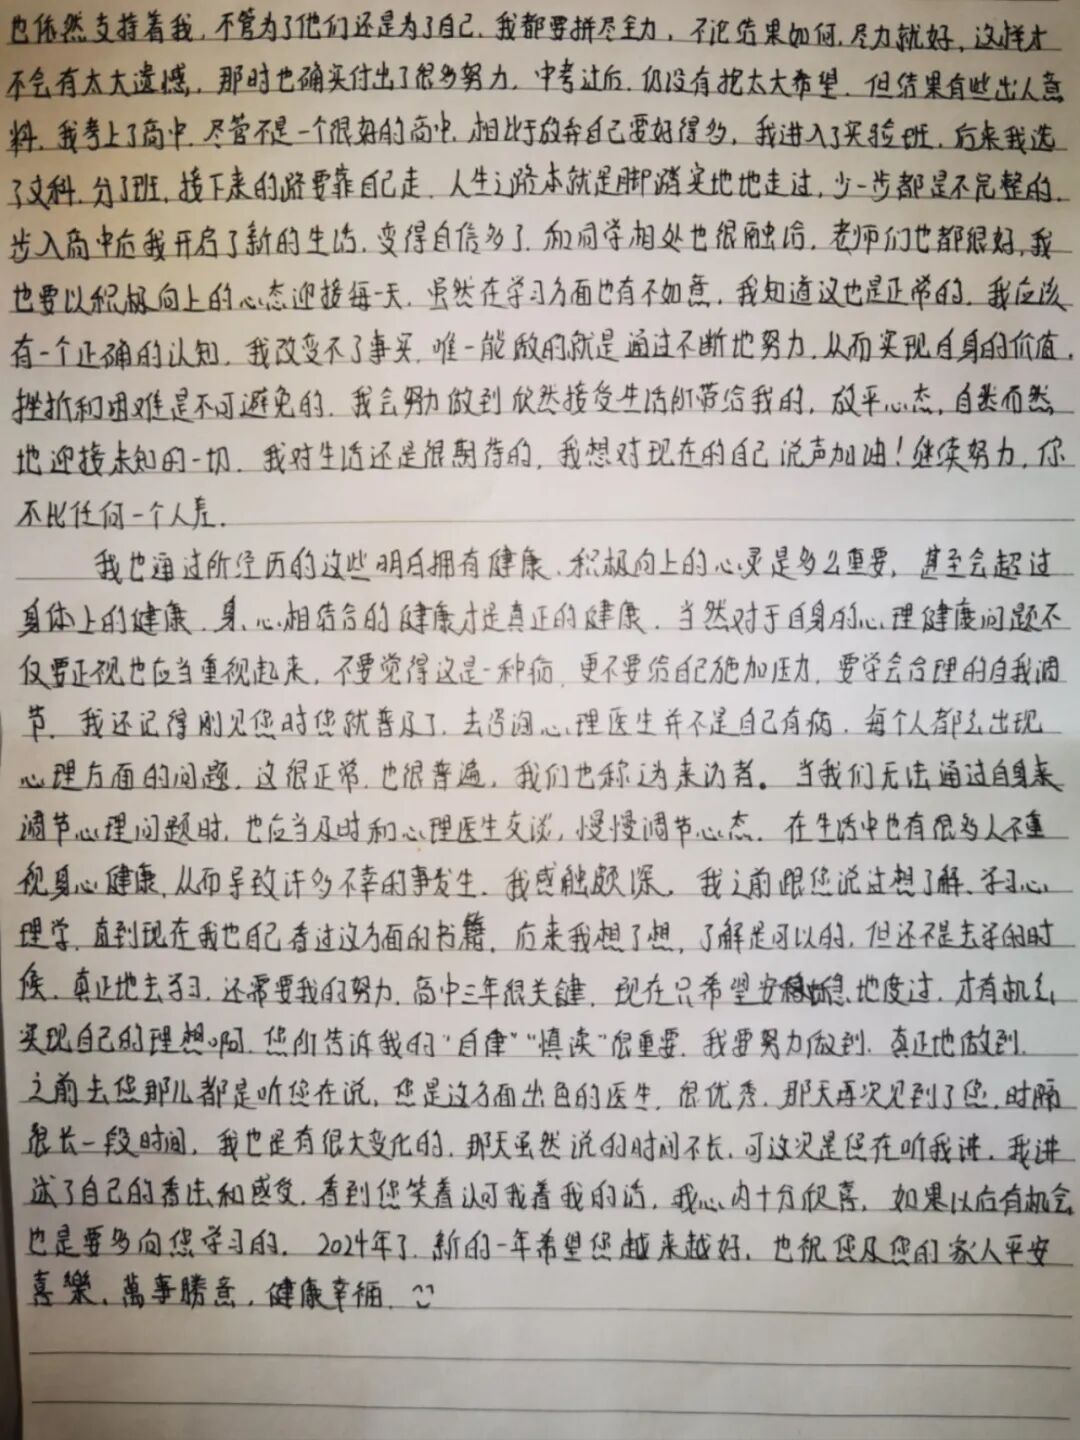 也依然支持着我，不管为了他们还是为了自己，我都要拼尽全力，不论结果如何，尽力就好，这样才
不会有太大遗憾，那时也确实付出了很多努力，中考过后，仍没有抱太大希望，但结果有些出人意
料，我考上了高中，尽管不是一个很好的高中，相比于放弃自己要好得多，我进入了实验班，后来我选
了文科，分了班，接下来的路要靠自己走，人生之路本就是脚踏实地地走过，少一步都是不完整的，
步入高中后我开启了新的生活，变得自信多了，和同学相处也很融洽，老师们也都很好，我
也要以积极向上的心态迎接每一天，虽然在学习方面也有不如意，我知道这也是正常的，我应该
有一个正确的认知，我改变不了事实，唯一能做的就是通过不断地努力，从而实现自身的价值，
挫折和困难是不可避免的，我会努力做到欣然接受生活所带给我的，放平心态，自然而然
地迎接未知的一切，我对生活还是很期待的，我想对现在的自己说声加油！继续努力，你
不比任何一个人差．
我也通过所经历的这些明白拥有健康、积极向上的心灵是多么重要，甚至会超过
身体上的健康，身、心相结合的健康才是真正的健康，当然对于自身的心理健康问题不
仅要正视也应当重视起来，不要觉得这是一种病，更不要给自己施加压力，要学会合理的自我调
节，我还记得刚见您时您就普及了，去咨询心理医生并不是自己有病，每个人都会出现
心理方面的问题，这很正常，也很普遍，我们也称之为来访者。当我们无法通过自身来
调节心理问题时，也应当及时和心理医生交谈，慢慢调节心态．在生活中也有很多人不重
视身心健康，从而导致许多不幸的事发生．我感触颇深．我之前跟您说过想了解、学习心
理学，直到现在我也自己看过这方面的书籍，后来我想了想，了解是可以的，但还不是去学的时
候，真正地去学习，还需要我的努力，高中三年很关键，现在只希望安稳地度过，才有机会
实现自己的理想啊，您所告诉我的“自律”“慎读”很重要，我要努力做到，真正地做到．
之前去您那儿都是听您在说，您是这方面出色的医生，很优秀，那天再次见到了您，时隔
很长一段时间，我也是有很大变化的，那天虽然说的时间不长，可这次是您在听我讲，我讲
述了自己的看法和感受，看到您笑着认可我着我的话，我心内十分欣喜，如果以后有机会
也是要多向您学习的，2024年了，新的一年希望您越来越好，也祝您及您的家人平安
喜樂，萬事勝意，健康幸福．